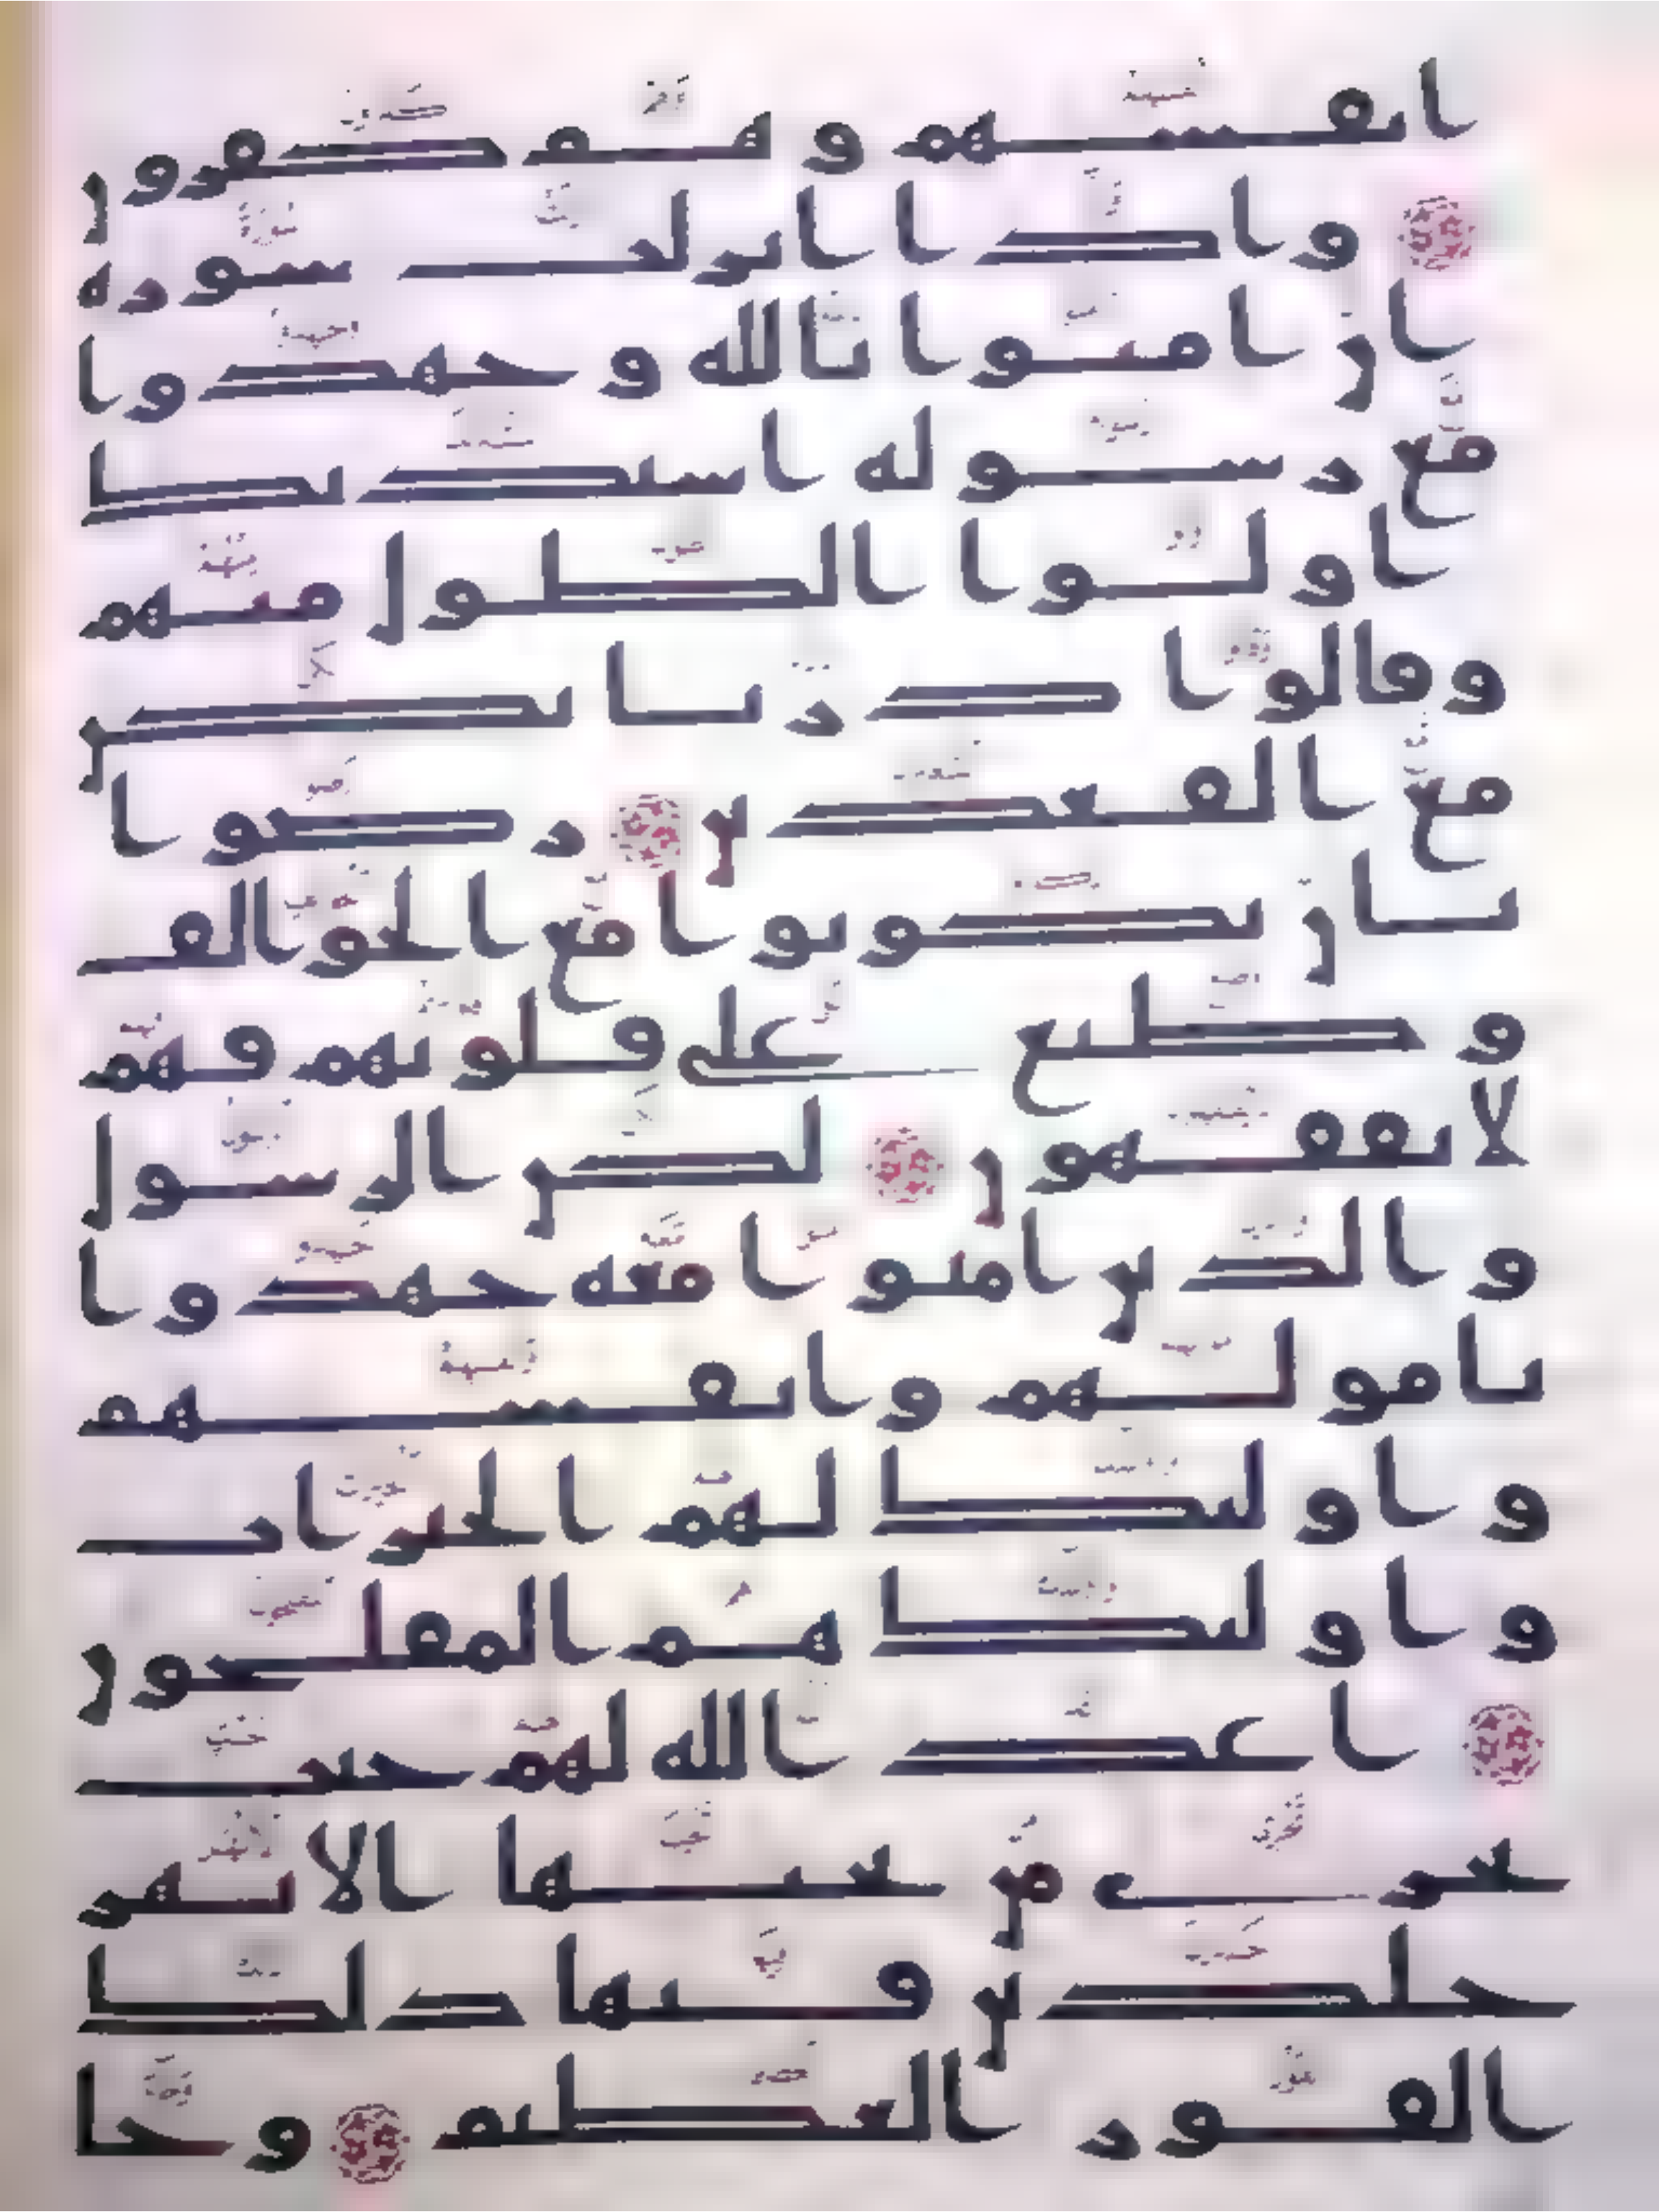 انفسهم و هم كفرون
واذا انزلت سورة
ان امنوا بالله و جهدوا
مع رسوله استذنك
اولوا الطول منهم
وقالوا ذرنا نكن
مع القعدين رضوا
بان يكونوا مع الخوالف
و طبع على قلوبهم فهم
لا يفقهون لكن الرسول
و الذين امنوا معه جهدوا
بامولهم وانفسهم
و اوليك لهم الخيرات
و اوليك هم المفلحون
اعد الله لهم جنت
تجري من تحتها الانهر
خلدين فيها ذلك
الفوز العظيم وجا